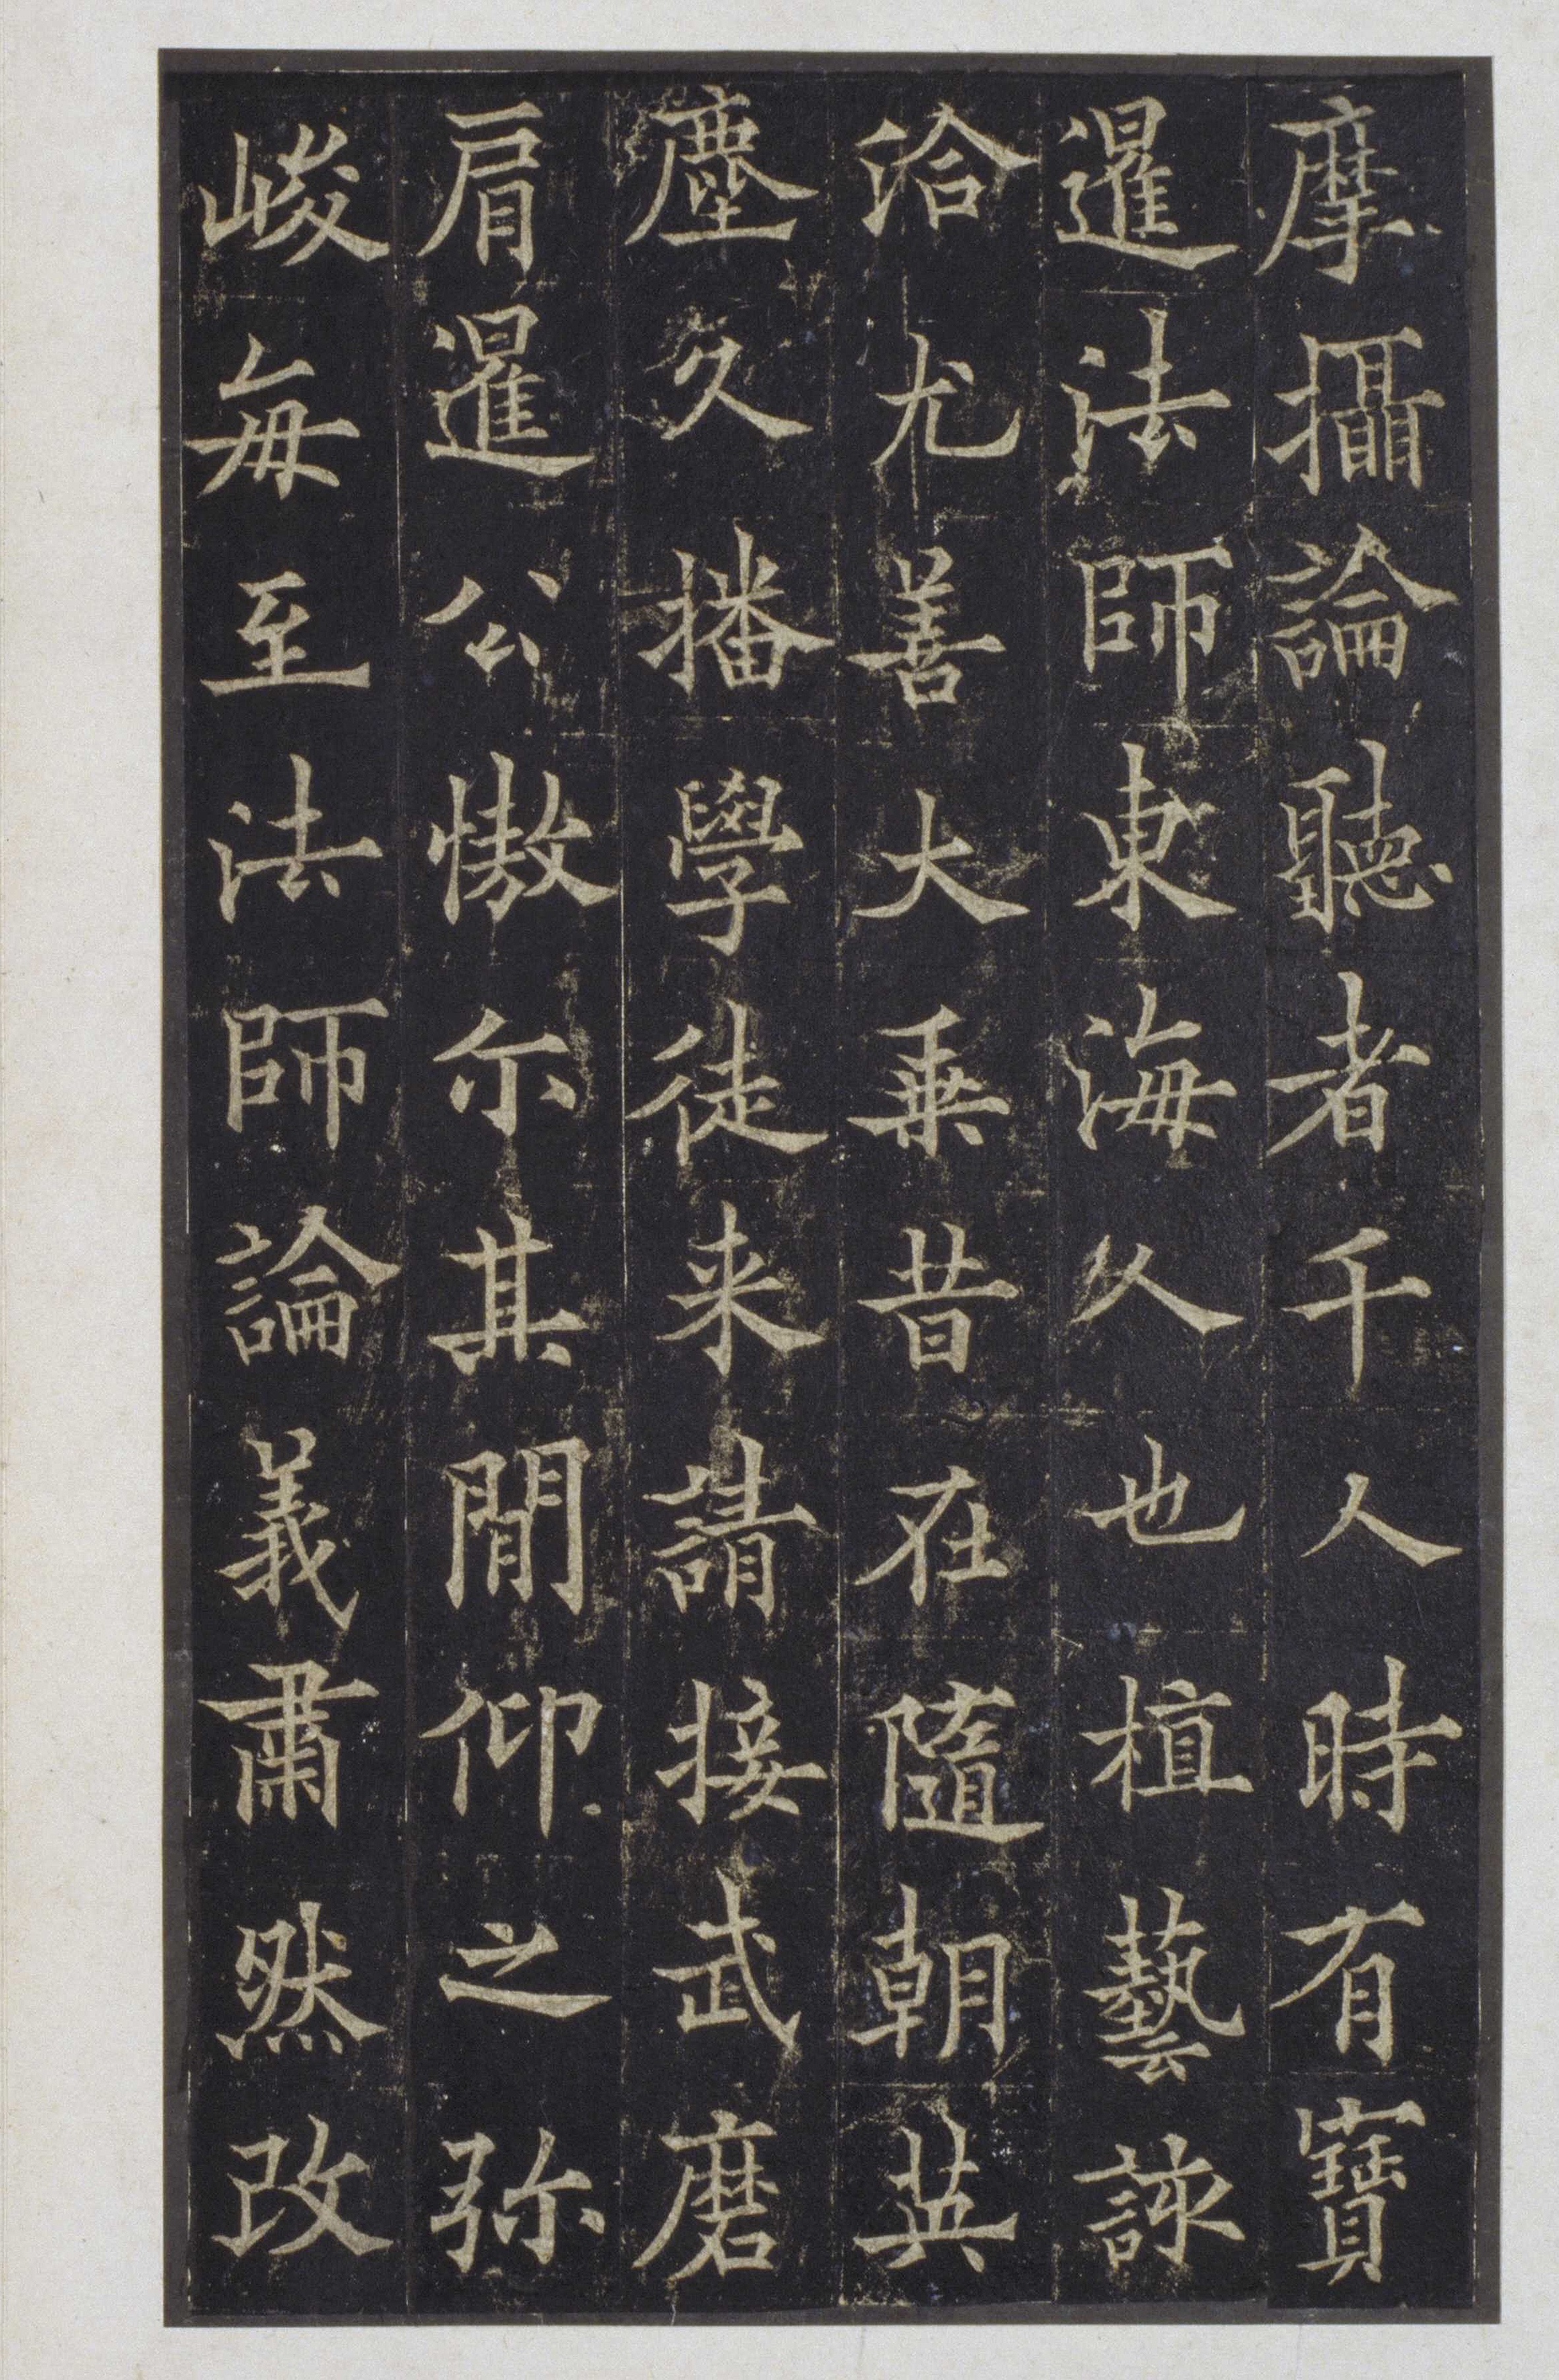 摩攝論聽者千人時有寶
暹法師東海人也植藝該
洽尤善大乗昔在隨朝英
塵久播學徒来請接武磨
肩暹公慠尓其閒仰之弥
峻每至法師論義肅然改